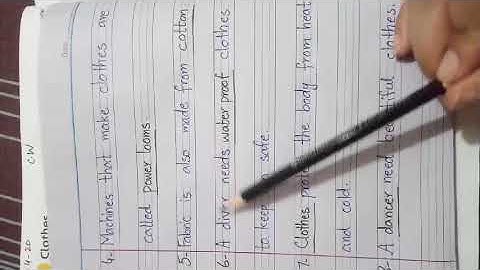 CW
Clothes
4- Machines that make clothes are
called power looms
5- Fabric is also made from cotton
6- A diver needs waterproof clothes
to keep safe
7- Clothes protect the body from heat
and cold.
8- A dancer need beautiful clothes.